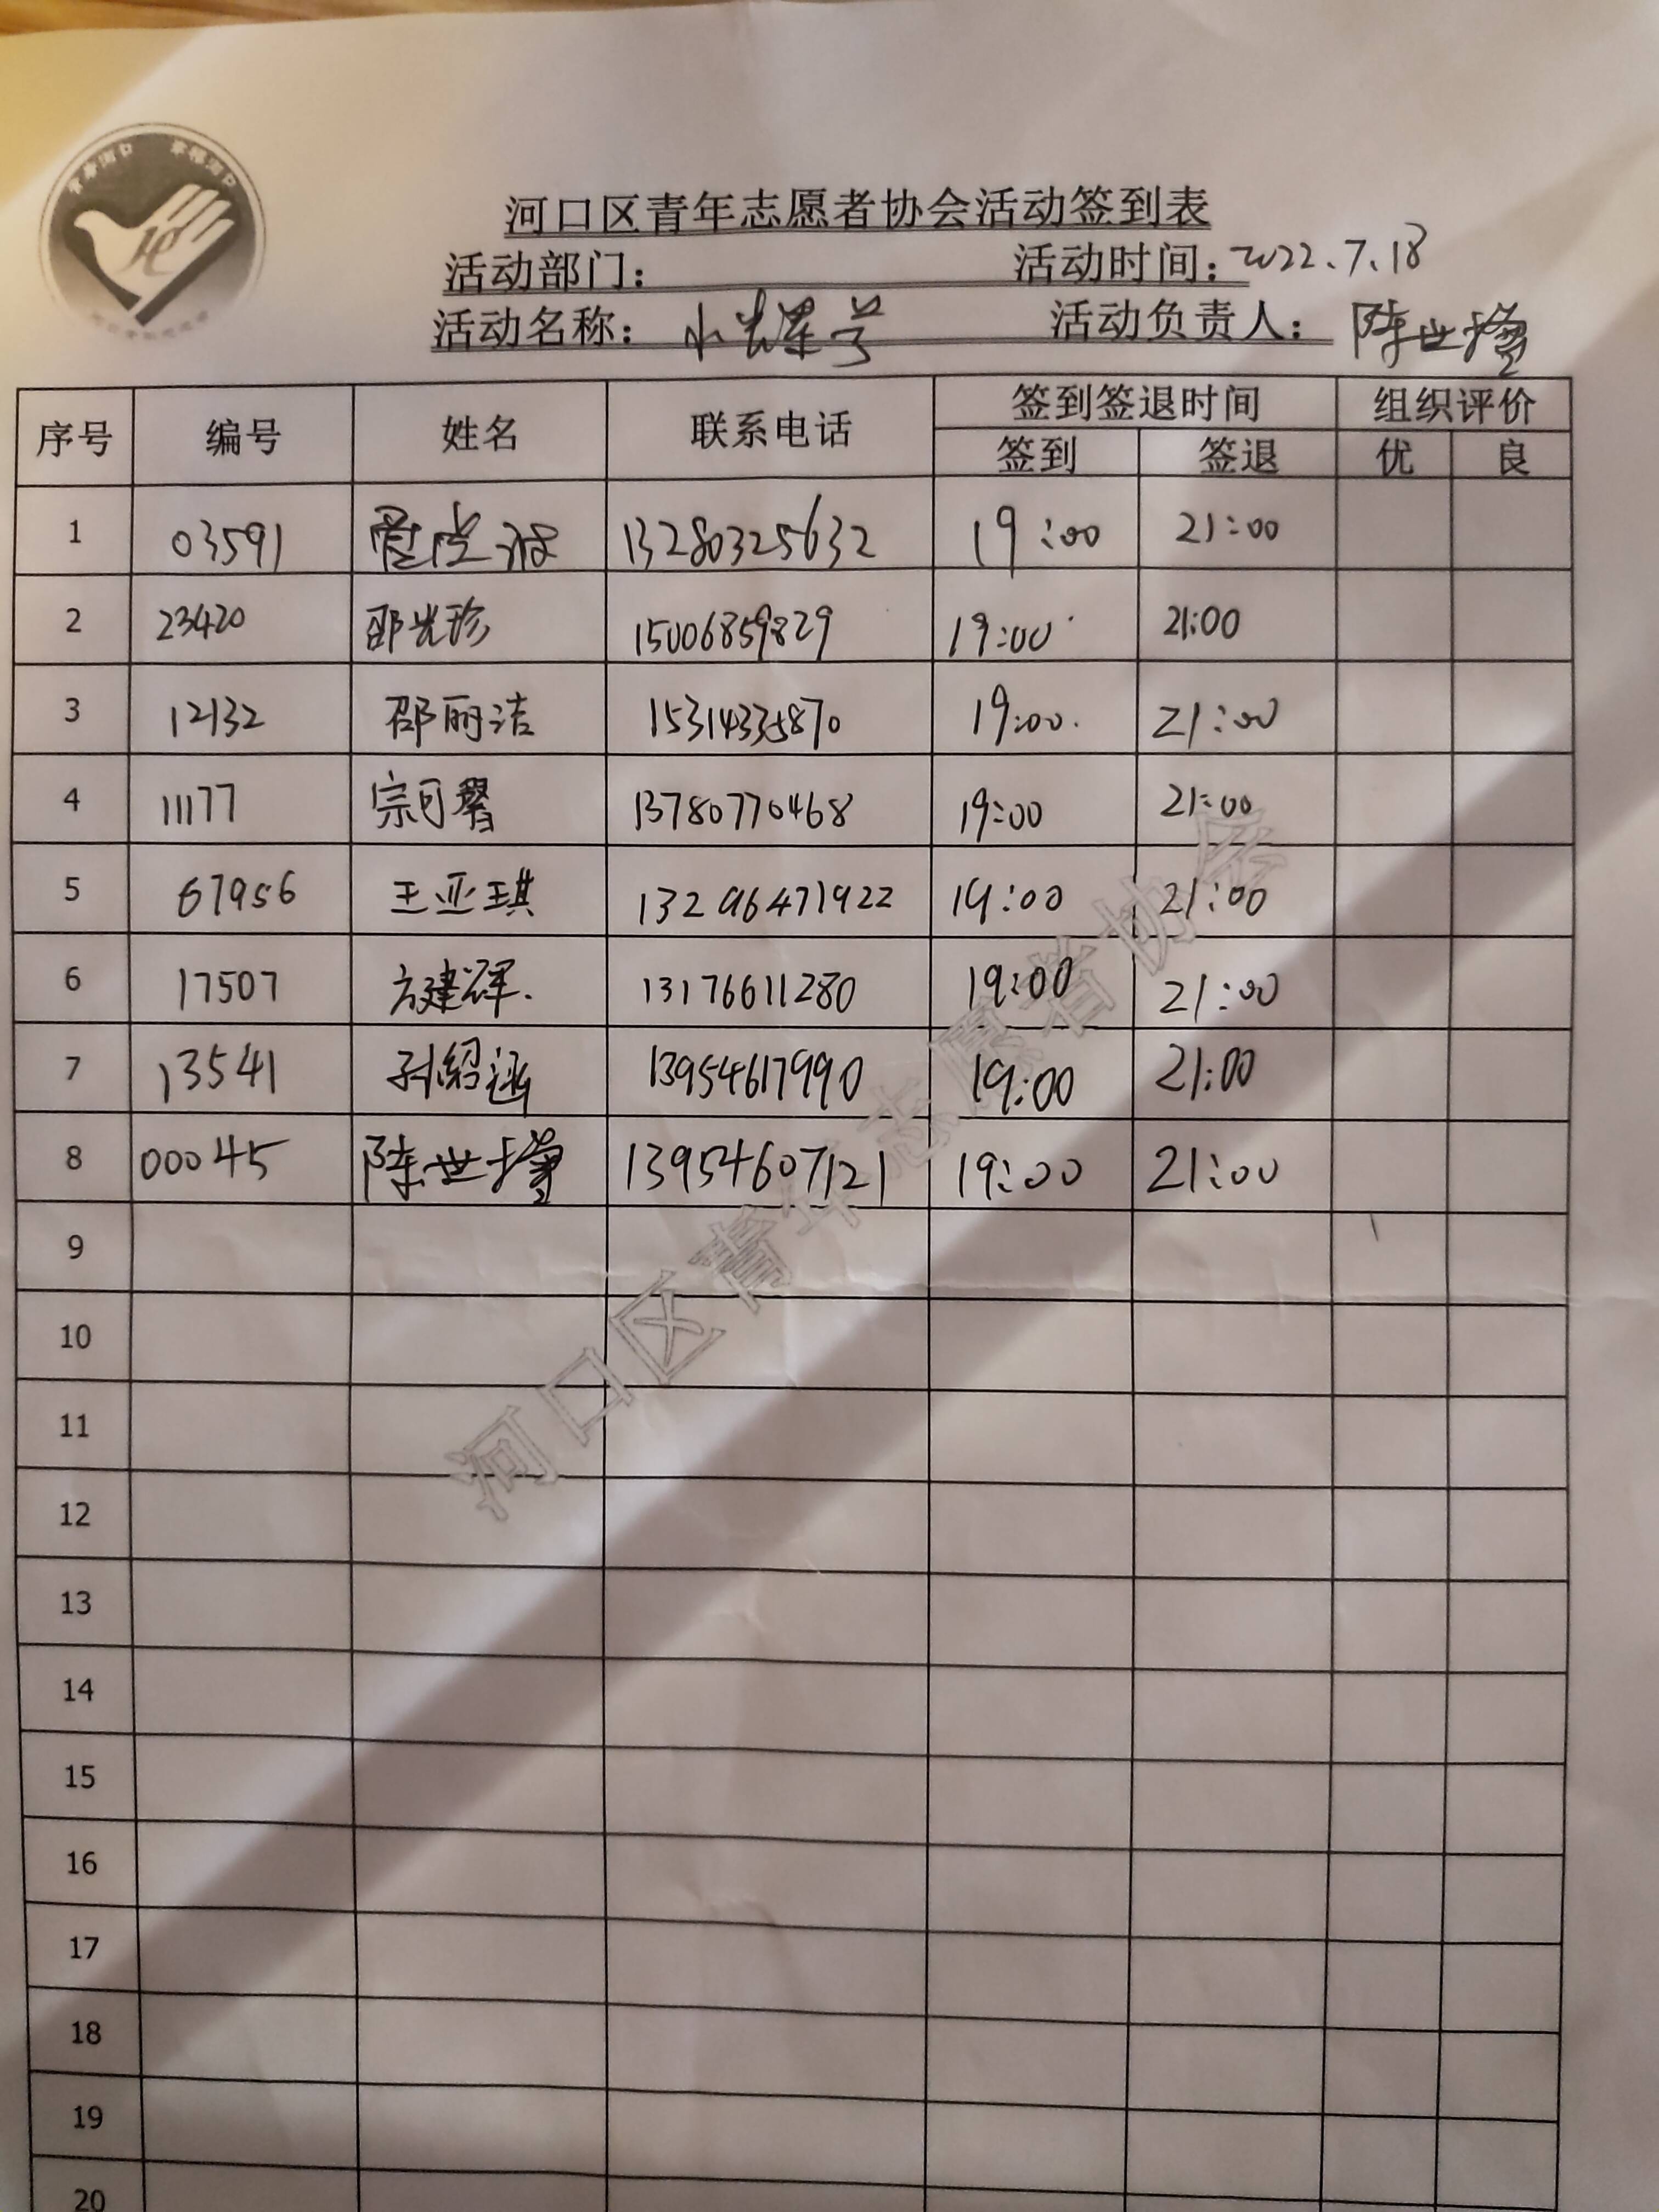 青春河口 幸福河口
河口区青年志愿者协会活动签到表
活动部门： 活动时间：2022.7.18
活动名称： 活动负责人： 陈世
序号 编号 姓名 联系电话 签到签退时间 组织评价
签到 签退 优 良
1 03591 13280325632 19:00 21:00
2 23420 邵光珍 15006859829 19:00 21:00
3 12132 邵丽洁 15314335870 19:00 21:00
4 11177 宗可馨 13780770468 19:00 21:00
5 67956 王亚琪 13296471922 19:00 21:00
6 17507 方建辉 13176611280 19:00 21:00
7 13541 孙绍涵 13954617990 19:00 21:00
8 00045 陈世 13954607121 19:00 21:00
9
10
11
12
13
14
15
16
17
18
19
20
河口区青年志愿者协会